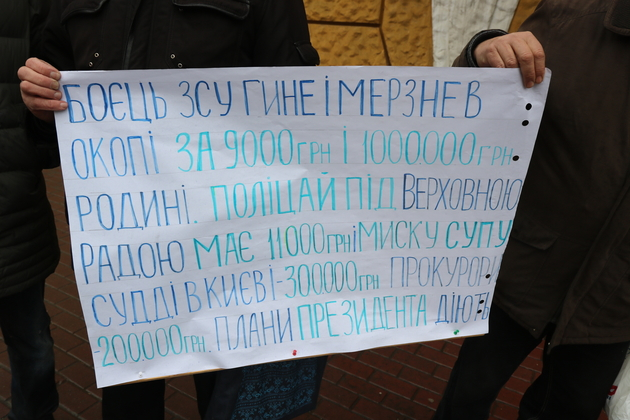 БОЄЦЬ ЗСУ ГИНЕ І МЕРЗНЕ В
ОКОПІ ЗА 9000 ГРН І 1000000 ГРН
РОДИНІ. ПОЛІЦАЙ ПІД ВЕРХОВНОЮ
РАДОЮ МАЄ 11000 ГРН І МИСКУ СУПУ
СУДДІ В КИЄВІ - 300000 ГРН ПРОКУРОРИ
- 200.000 ГРН. ПЛАНИ ПРЕЗИДЕНТА ДІЮТЬ